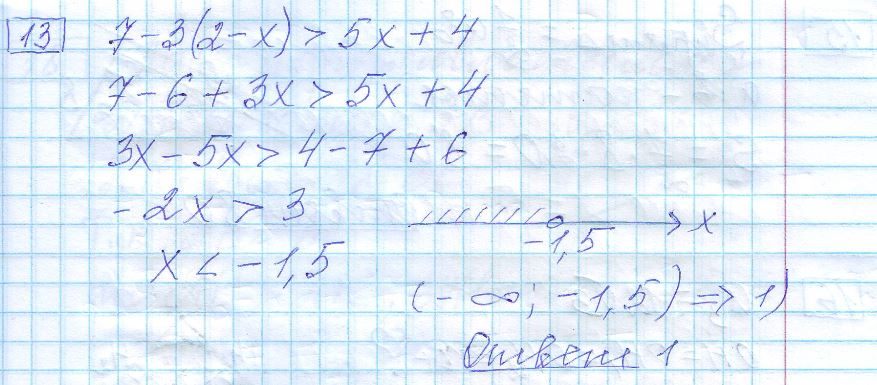 13 7 - 3(2 - x) > 5x + 4
7 - 6 + 3x > 5x + 4
3x - 5x > 4 - 7 + 6
- 2x > 3
x
-1,5
x < -1,5
(-∞; -1,5) => 1)
Ответ 1